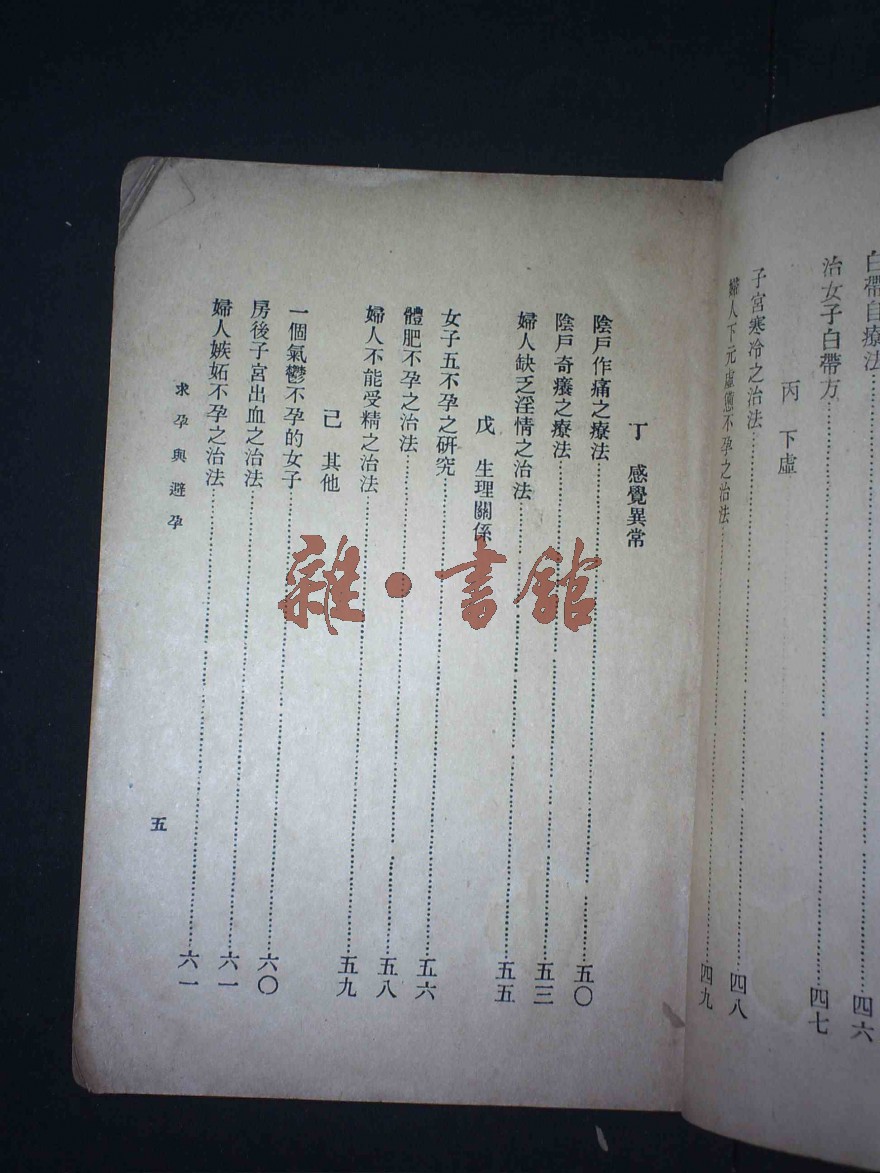 白帶自療法……四六
治女子白帶方……四七
丙 下虛
子宮寒冷之治法……四八
婦人下元虛憊不孕之治法……四九
丁 感覺異常
陰戶作痛之療法……五〇
陰戶奇癢之療法……五三
婦人缺乏淫情之治法……五五
戊 生理關係
女子五不孕之研究……五六
體肥不孕之治法……五八
婦人不能受精之治法……五九
己 其他
一個氣鬱不孕的女子……六〇
房後子宮出血之治法……六一
婦人嫉妬不孕之治法……六一
求孕與避孕
五
雜·書館